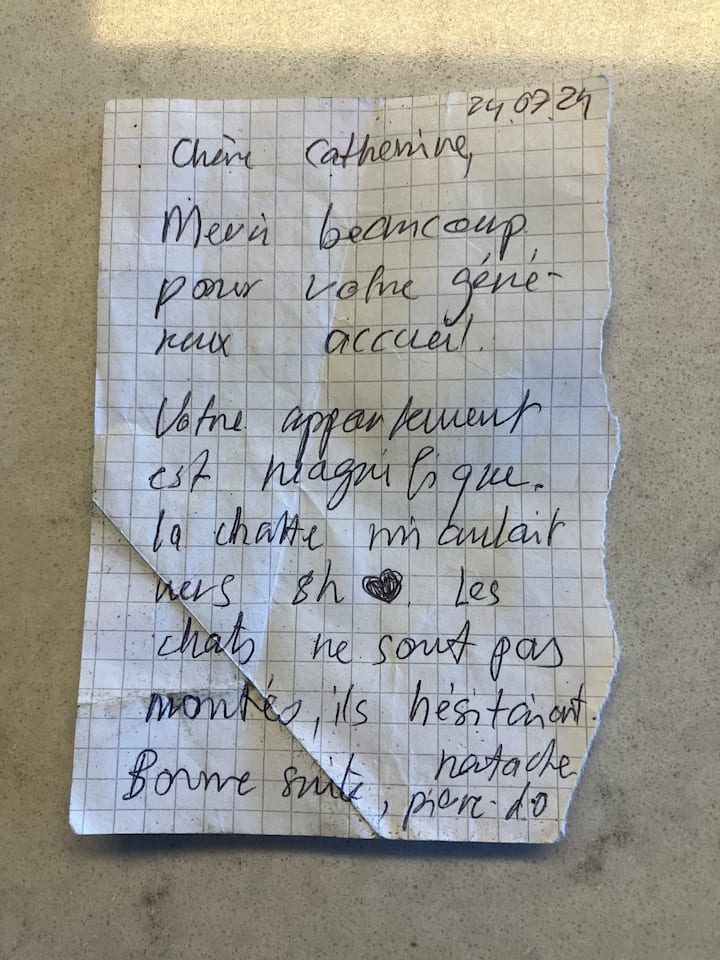 24.07.24
Chère Catherine,
Merci beaucoup
pour votre géné-
reux accueil.
Votre appartement
est magnifique.
la chatte miaulait
vers 8h ♥. Les
chats ne sont pas
montés, ils hésitaient.
natache
Bonne suite, pierre-do